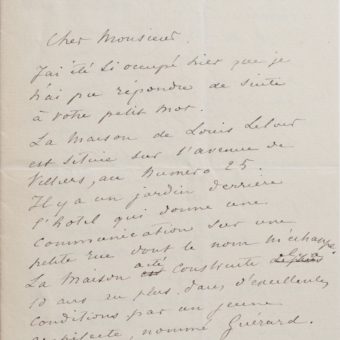 Cher Monsieur.
J'ai été si occupé hier que je
n'ai pu répondre de suite
à votre petit mot.
La Maison de Louis Leloir
est située sur l'avenue de
Villiers, au Numéro 25.
Il y a un jardin derrière
l'hôtel qui donne une
communication sur une
petite rue dont le nom m'échappe.
La Maison a été construite
10 ans au plus. dans d'excellentes
conditions par un jeune
architecte, nommé Guérard.